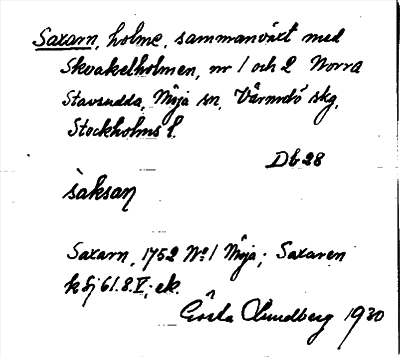 Saxarn, holme, sammanväxt med
Skvakelholmen, nr 1 och 2 Norra
Stavsudda, Möja sn, Värmdö skg,
Stockholms l.
Db 28
sàksan
Saxarn, 1752 No 1 Möja; Saxaren
k Sj 61.8.V; ek.
Gösta Lundberg 1930